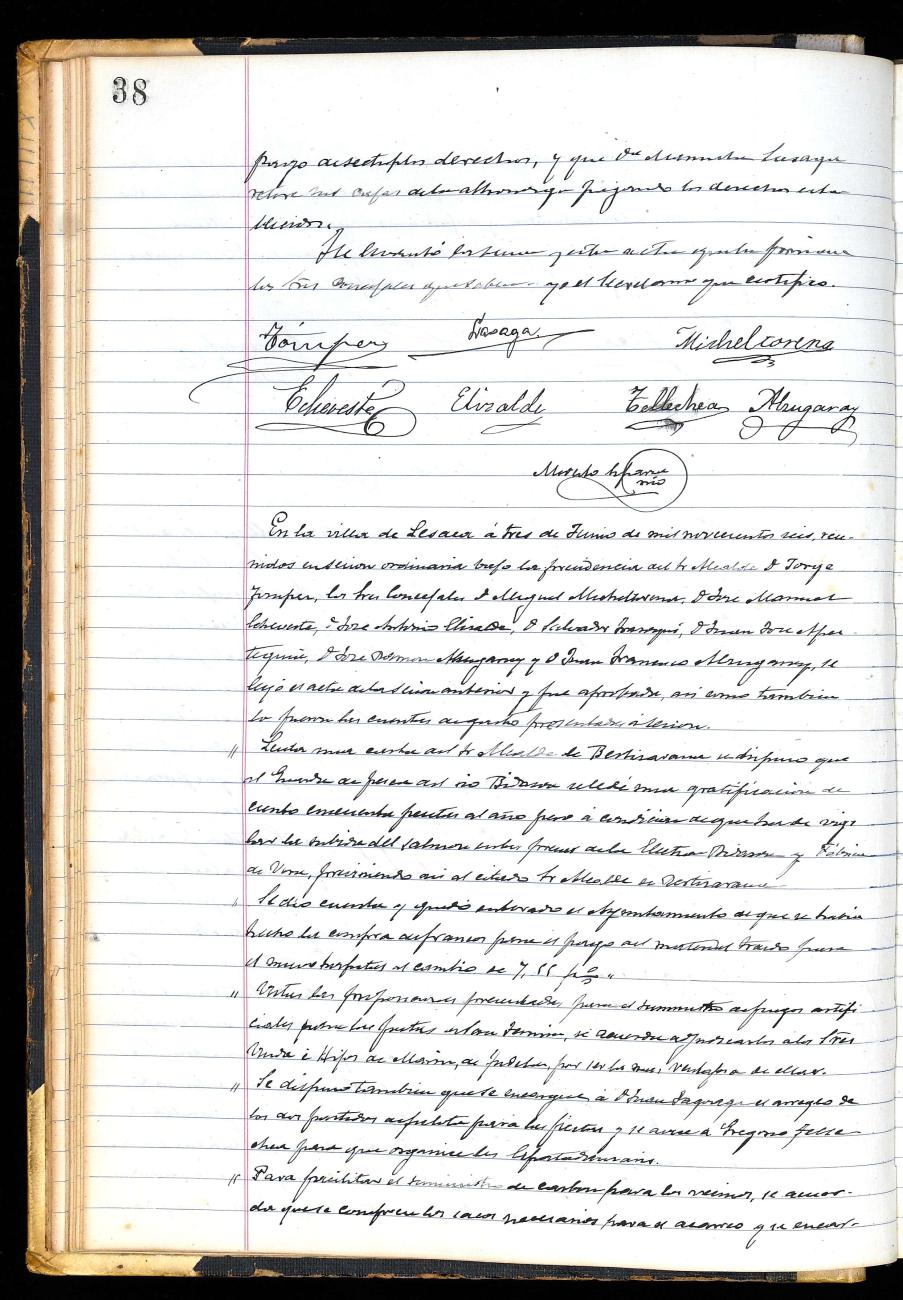 38
pago de sectuplos derechos, y que Dª Lasaga
retire sus cajas de la alhondiga pagando los derechos esta-
blecidos.
Se levantó la sesion y esta acta que la firman
los Sres Concejales que saben y yo el Secretario que certifico.
Jómper Lasaga Micheltorena
Echeveste Elizalde Tellechea Alzugaray
En la villa de Lesaca á tres de Junio de mil novecientos seis, reu-
nidos en sesion ordinaria bajo la presidencia del Sr Alcalde D Jorge
Jomper, los Sres Concejales D Miguel Micheltorena, D Jose Manuel
Echeveste, D Jose Antonio Elizalde, D Salvador D Juan Jose Aper-
teguia, D Jose Ramon Alzugaray y D Juan Francisco Alzugaray, se
leyó el acta de la sesion anterior y fue aprobada, asi como tambien
lo fueron las cuentas de gasto presentadas á sesion.
" Leida una carta del Sr Alcalde de Bertizarana se dispuso que
al Guarda de pesca del rio Bidasoa se le dé una gratificacion de
ciento cincuenta pesetas al año pero á condicion de que ha de vigi-
lar la subida del salmon en las presas de la Electra Bidasoa y Fábrica
de Vera, previniendo asi al citado Sr Alcalde de Bertizarana
" Se dio cuenta y quedó enterado el Ayuntamiento de que se habia
hecho la compra de francos para el pago del material traido para
el nuevo al cambio de 7,55 p%.
" Vistas las proposiciones presentadas para el suministro de fuegos artifi-
ciales para las fiestas de San Fermin, se acuerda adjudicarlos a los Sres
Viuda é Hijos de de Tudela, por ser la mas ventajosa de ellas.
" Se dispuso tambien que se encargue á D Juan el arreglo de
los dos partidos de pelota para las fiestas y se avise á Gregorio Telle-
chea para que organice los Espatadanzaris.
" Para facilitar el suministro de carbon para los vecinos, se acuer-
da que se compren los sacos necesarios para el acarreo y se encar-